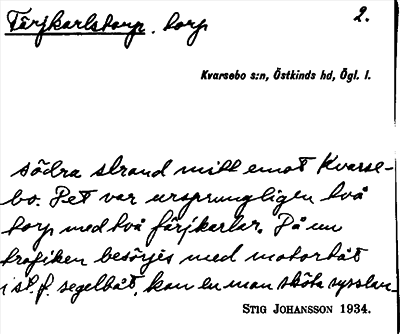 Färjkarlstorp, torp 2.
Kvarsebo s:n, Östkinds hd, Ögl. l.
södra strand mitt emot Kvarse-
bo. Det var ursprungligen två
torp med två färjkarlar. Då nu
trafiken besörjes med motorbåt
i st. f. segelbåt, kan en man sköta sysslan.
STIG JOHANSSON 1934.